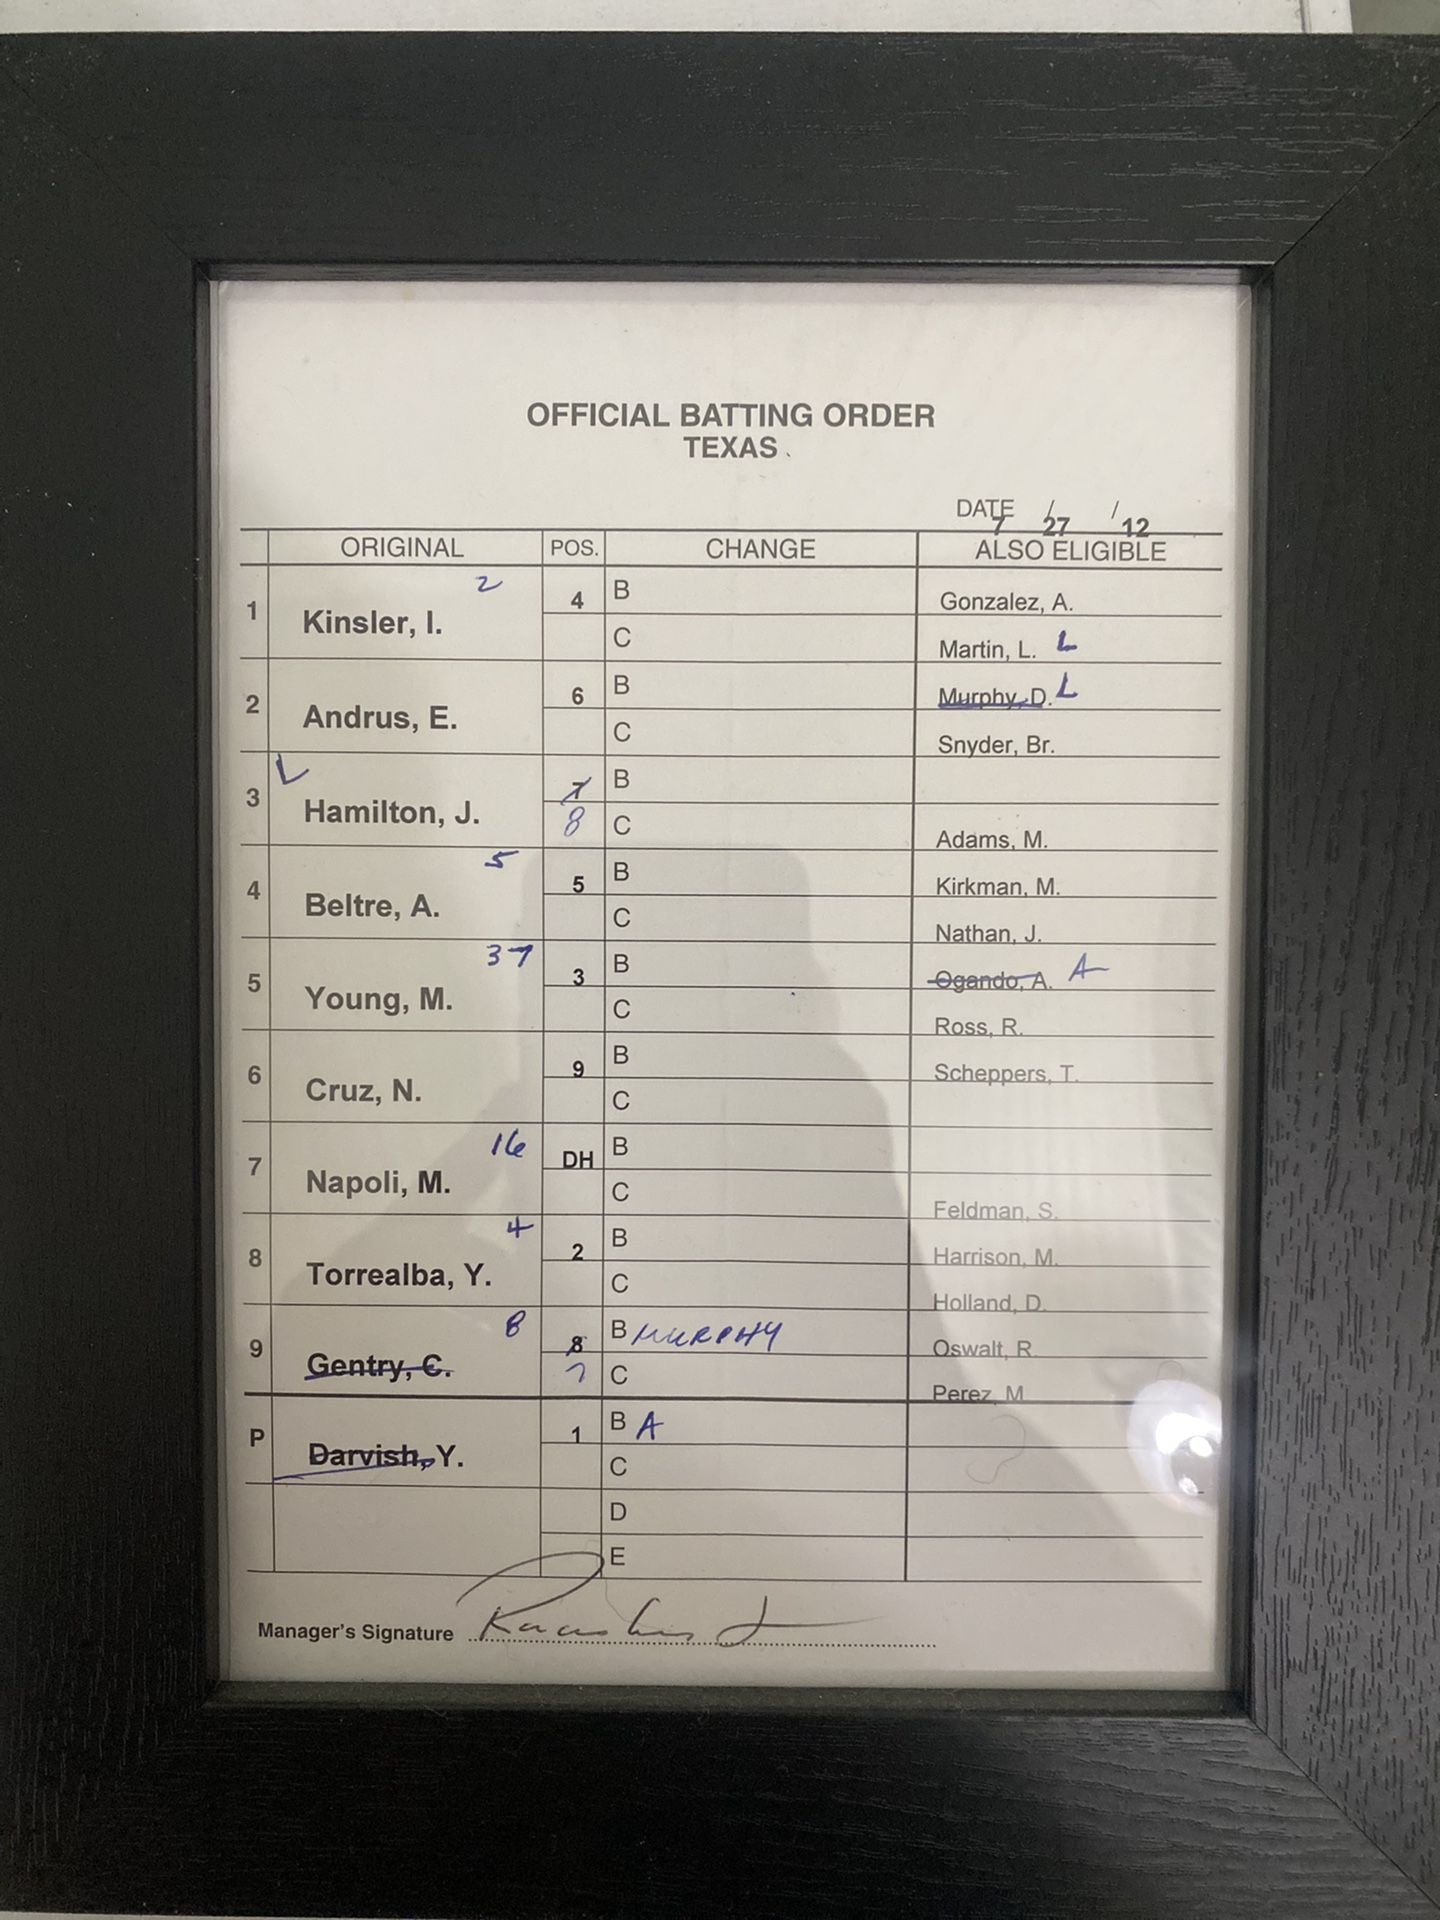 OFFICIAL BATTING ORDER
TEXAS
DATE 7 / 27 / 12
ORIGINAL POS. CHANGE ALSO ELIGIBLE
1 Kinsler, I. 2 4 B Gonzalez, A.
C Martin, L. L
2 Andrus, E. 6 B Murphy, D. L
C Snyder, Br.
3 L Hamilton, J. 7 B
8 C Adams, M.
4 Beltre, A. 5 5 B Kirkman, M.
C Nathan, J.
5 Young, M. 37 3 B Ogando, A. A
C Ross, R.
6 Cruz, N. 9 B Scheppers, T.
C
7 Napoli, M. 16 DH B
C Feldman, S.
8 Torrealba, Y. 4 2 B Harrison, M.
C Holland, D.
9 Gentry, C. 8 8 B MURPHY Oswalt, R.
7 C Perez, M
P Darvish, Y. 1 B A
C
D
E
Manager's Signature